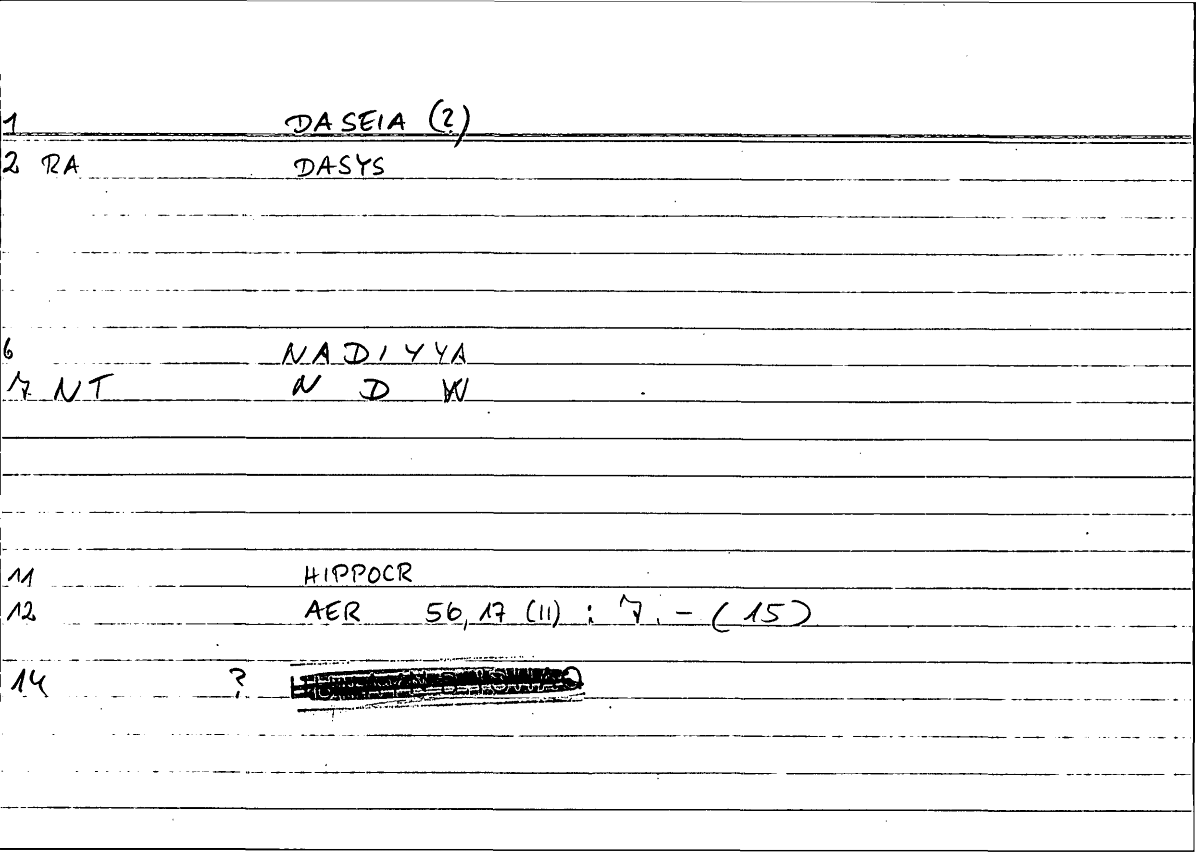 1 DASEIA (?)
2 RA DASYS
6 NADIYYA
7 NT N D W
11 HIPPOCR
12 AER 56,17 (11) : 7. - (15)
14 ?